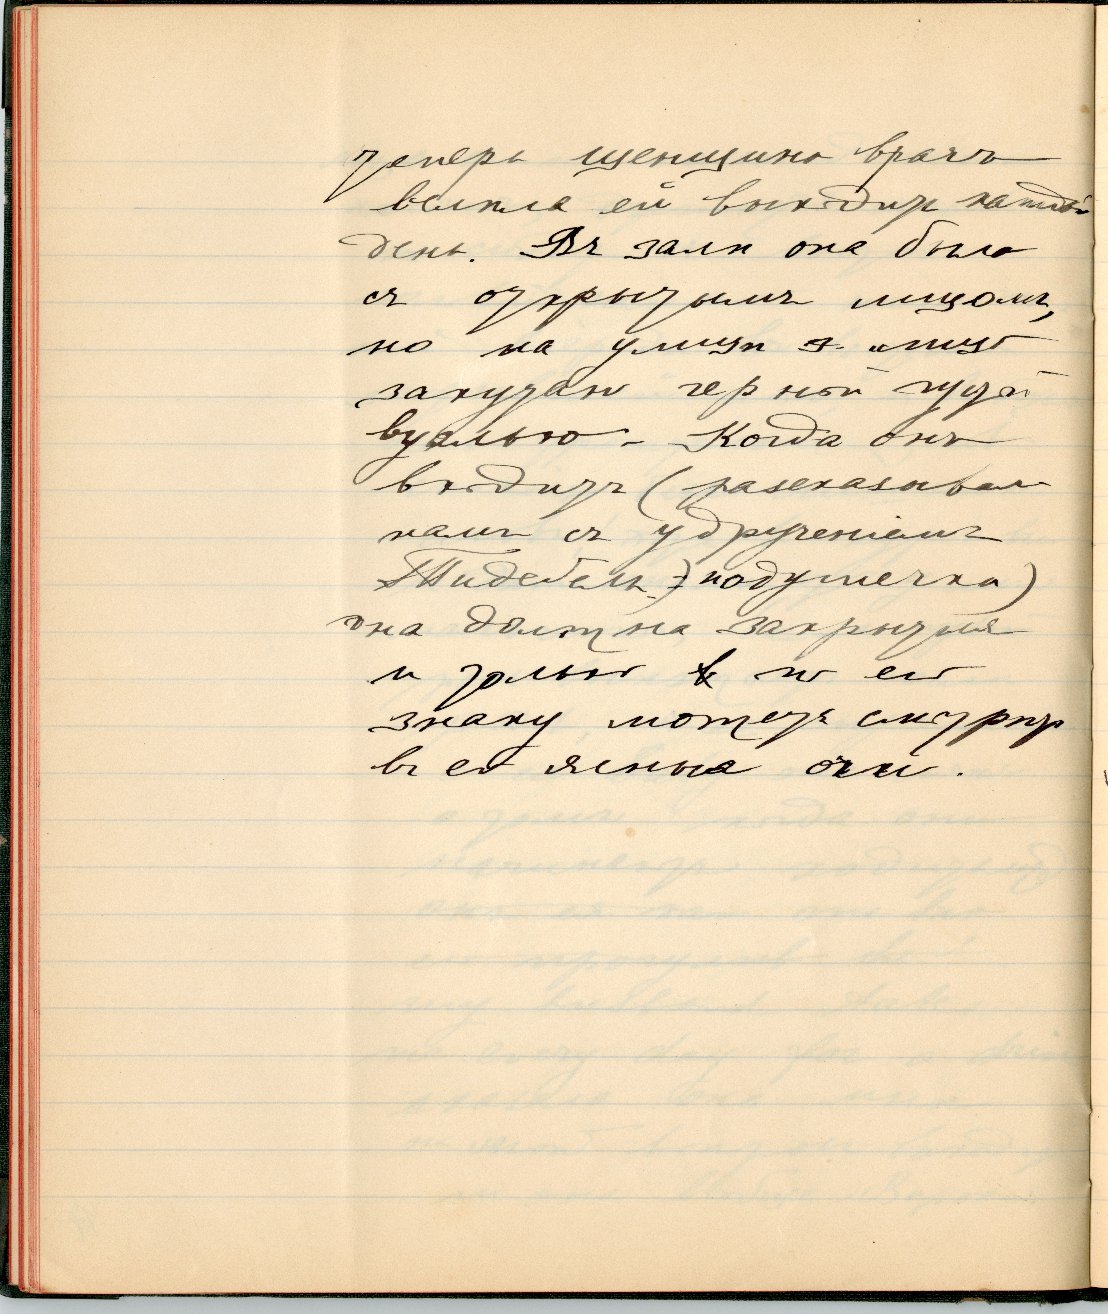 теперь женщина врачъ
велѣла ей выходить каждый
день. Въ залѣ она была
съ открытымъ лицомъ,
но на улицѣ лицо
закутано черной густой
вуалью – Когда онъ
входитъ (разсказывала
намъ съ удрученіемъ
подушечка)
она должна закрыться
и только по его
знаку можетъ смотрѣть
въ его ясные очи.